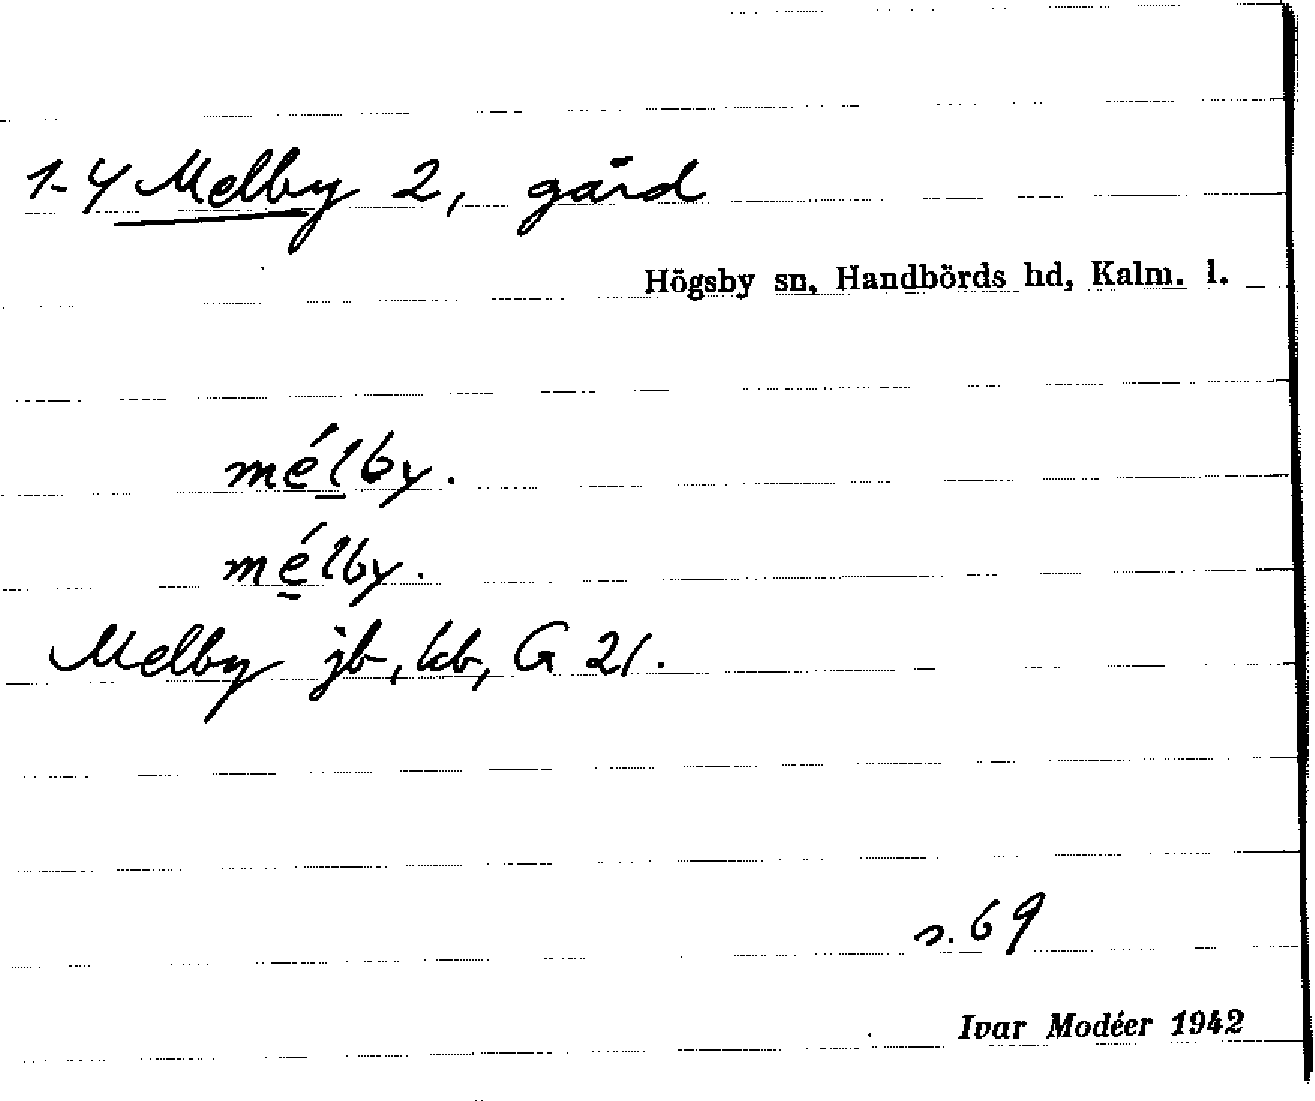 1-4 Melby 2, gård
Högsby sn, Handbörds hd, Kalm. l.
mélby.
mélby.
Melby jb, kb, G 21.
s. 69
Ivar Modéer 1942